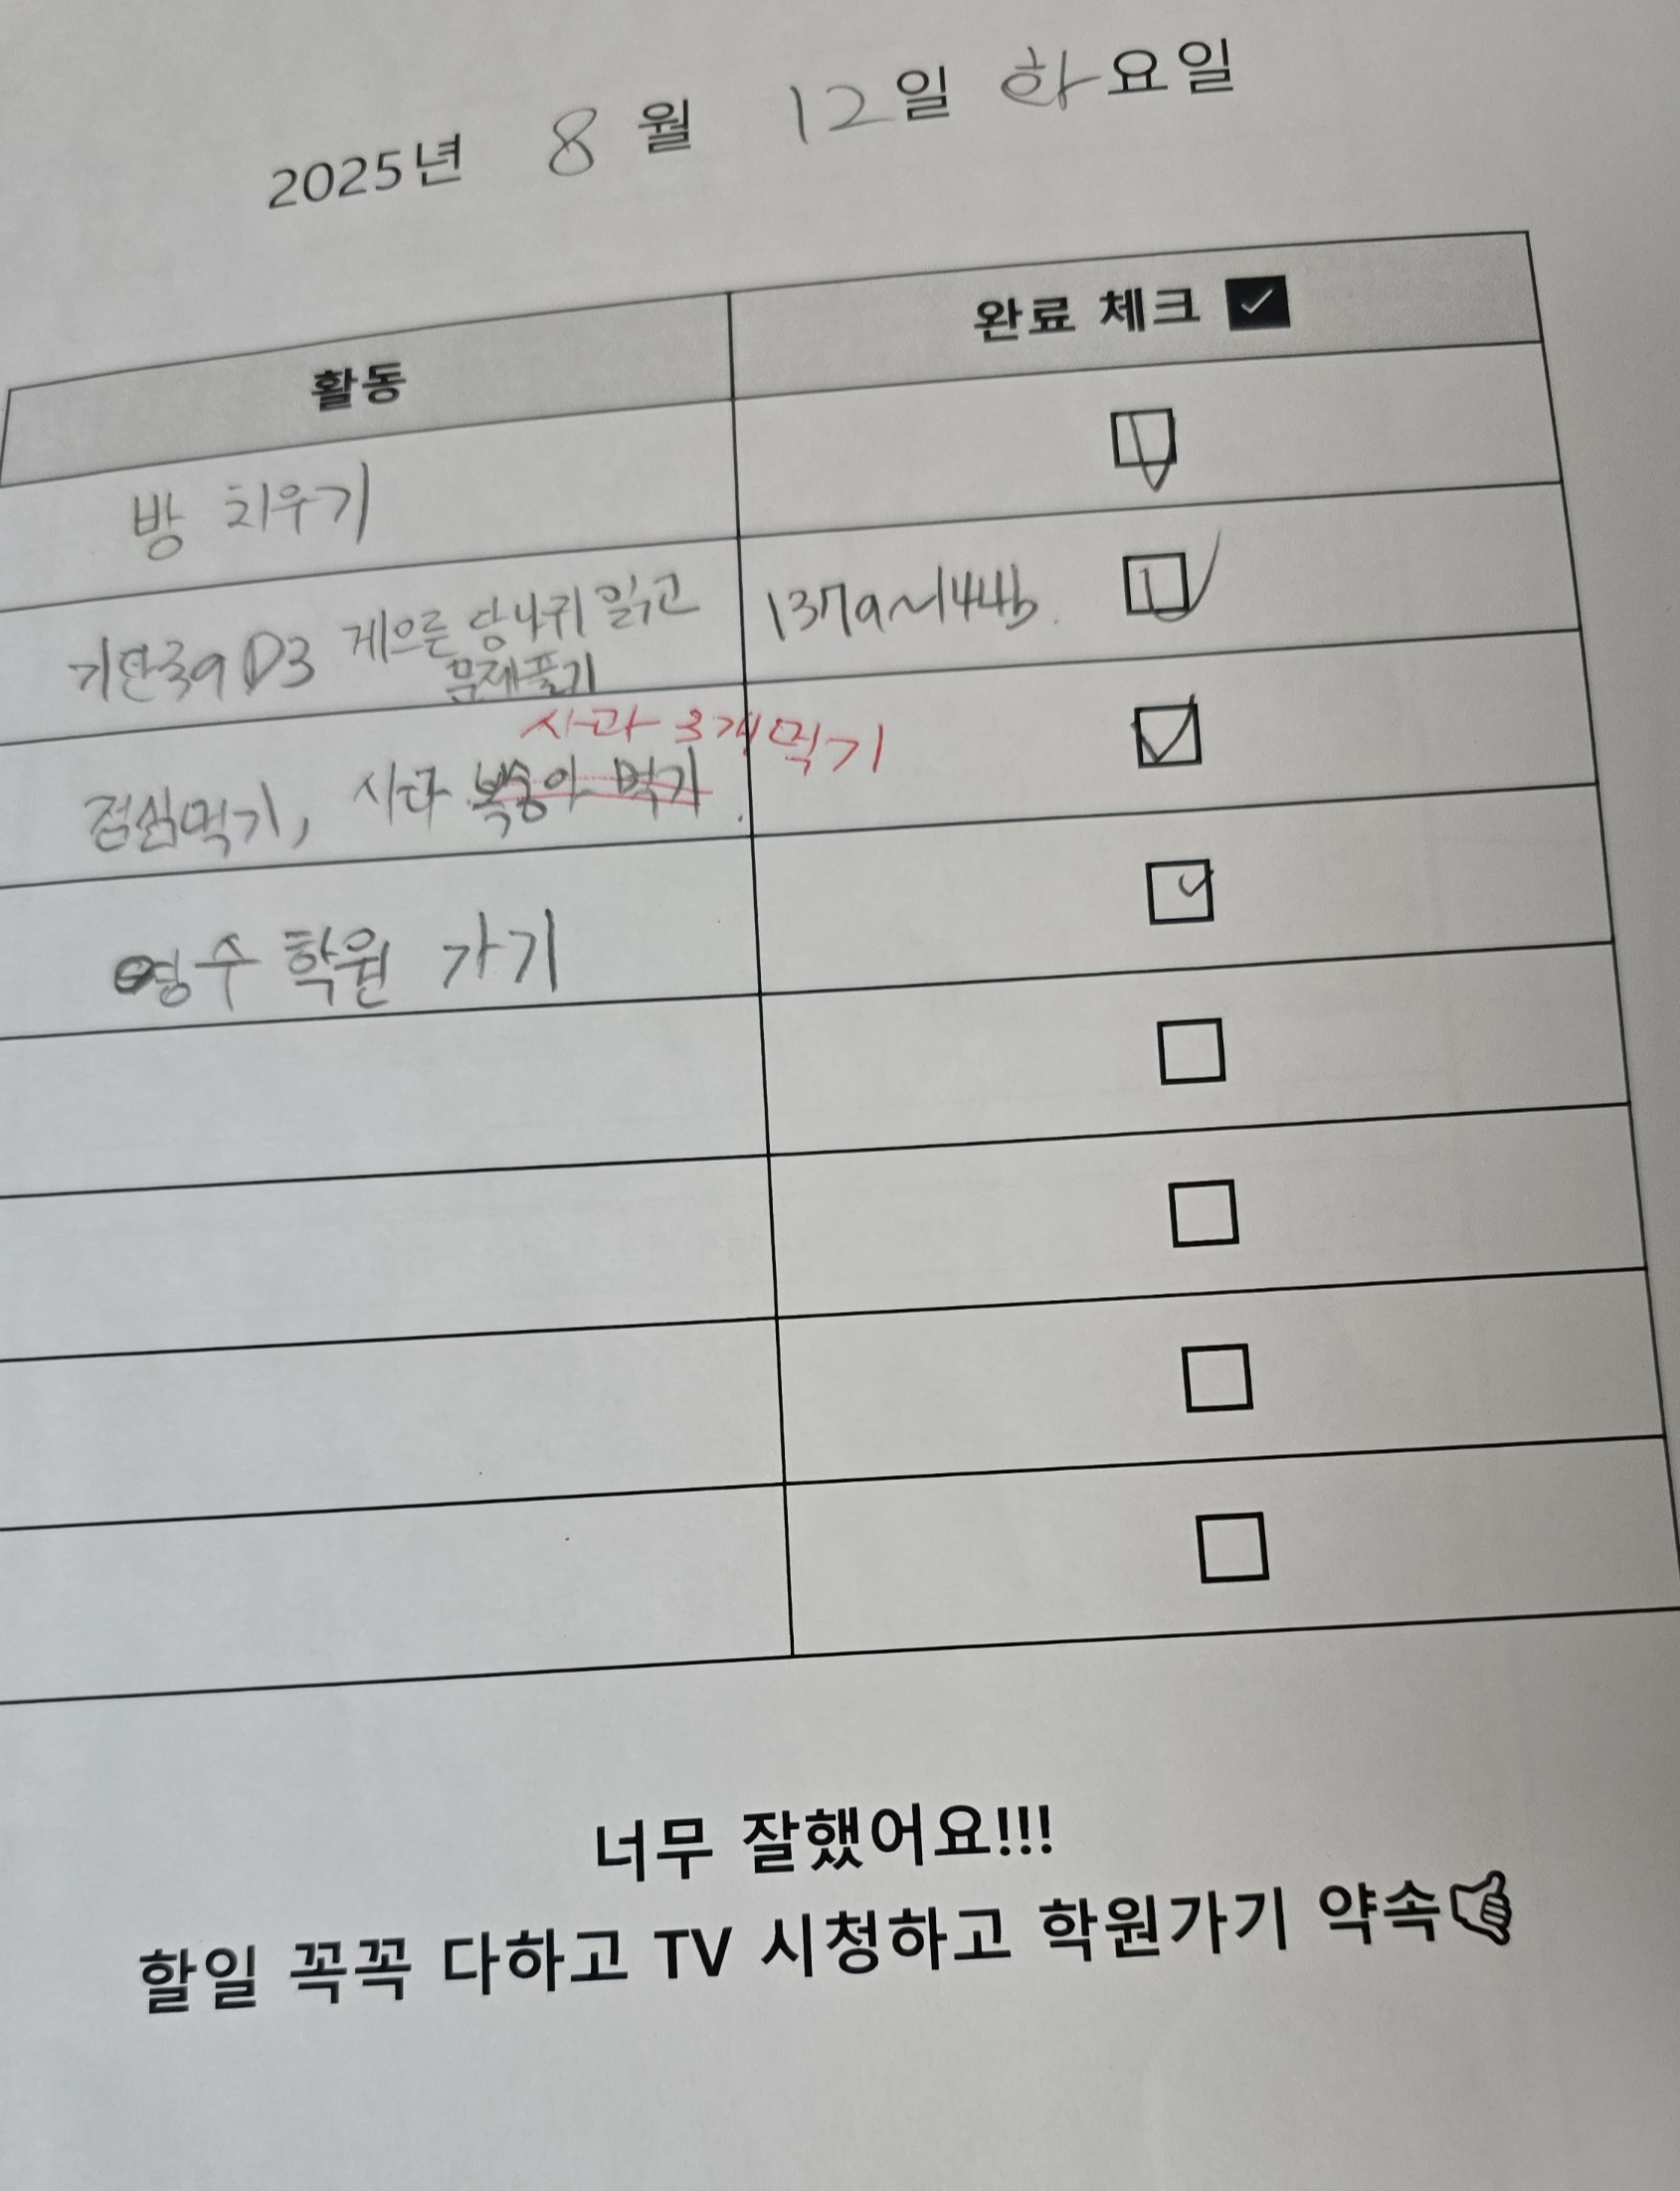 2025년 8월 12일 화요일
활동 완료 체크
방 치우기
기탄국어 D3 게으른 당나귀 읽고 137a~144b.
문제풀기
사과 3개 먹기
점심먹기, 복숭아 먹기.
영수 학원 가기
너무 잘했어요!!!
할일 꼭꼭 다하고 TV 시청하고 학원가기 약속